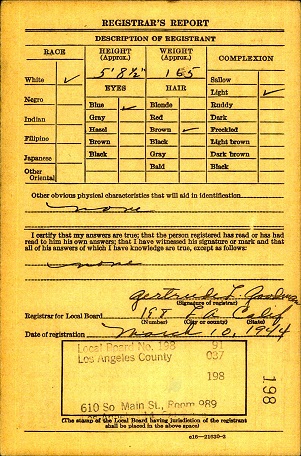 REGISTRAR'S REPORT
DESCRIPTION OF REGISTRANT
RACE HEIGHT (Approx.) WEIGHT (Approx.) COMPLEXION
5' 8 ½" 165
White ✓ Sallow
EYES HAIR Light ✓
Negro Blue ✓ Blonde Ruddy
Indian Gray Red Dark
Hazel Brown ✓ Freckled
Filipino Brown Black Light brown
Japanese Black Gray Dark brown
Other Oriental Bald Black
Other obvious physical characteristics that will aid in identification
none
I certify that my answers are true; that the person registered has read or has had
read to him his own answers; that I have witnessed his signature or mark and that
all of his answers of which I have knowledge are true, except as follows:
none
Gertrude L.
(Signature of registrar)
Registrar for Local Board 198 L A Calif
(Number) (City or county) (State)
Date of registration March 10, 1944
Local Board No. 198 91
Los Angeles County 037
198
610 So Main St., Room 989
198
(The stamp of the Local Board having jurisdiction of the registrant
shall be placed in the above space)
c16—21630-2